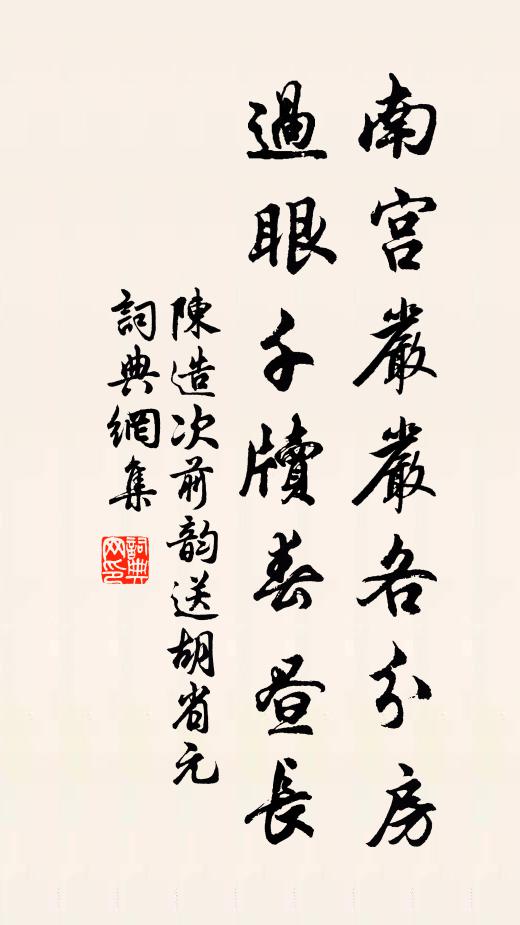 南宮嚴嚴各分房
過眼千牘春晝長
陳造次前韵送胡省元
詞典網集
詞典网印